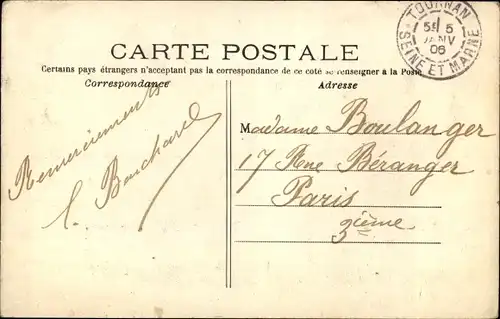 TOURNAN
5E 5
JANV
06
SEINE ET MARNE
CARTE POSTALE
Certains pays étrangers n'acceptant pas la correspondance de ce côté se renseigner à la Poste
Correspondance
Remerciements
Adresse
Madame Boulanger
17 Rue Béranger
Paris
3ième